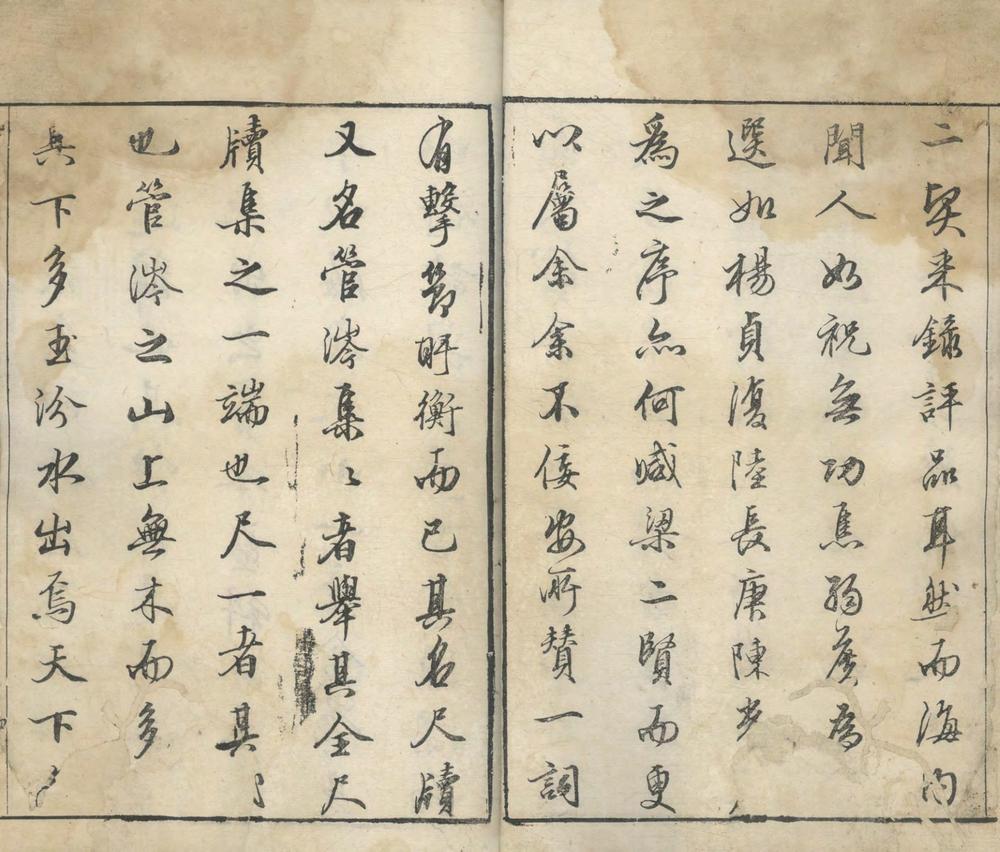 二契来錄評品耳然而海内
聞人如祝無功焦弱侯為
選如楊貞復陸長庚陳
為之序亦何減梁二賢而更
以屬余余不佞安所賛一詞
有擊節盱衡而已其名尺牘
又名管涔集〻者舉其全尺
牘集之一端也尺一者其
也管涔之山上無木而多
其下多玉汾水出焉天下